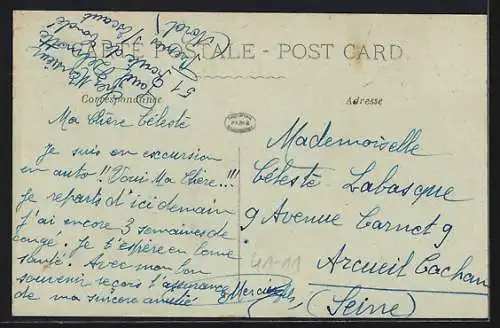 CARTE POSTALE - POST CARD
Correspondance
Adresse
51
(Nord)
Ma Chère Céleste
Je suis en excursion
en auto !! Vous Ma Chère...!!
Je repars d'ici demain
J'ai encore 3 semaines de
congé. Je t'espère en bonne
santé. Avec mon bon
souvenir reçois l'assurance
de ma sincère amitié
Mademoiselle
Céleste Labasque
9 Avenue Carnot 9
Arcueil Cachan
(Seine)